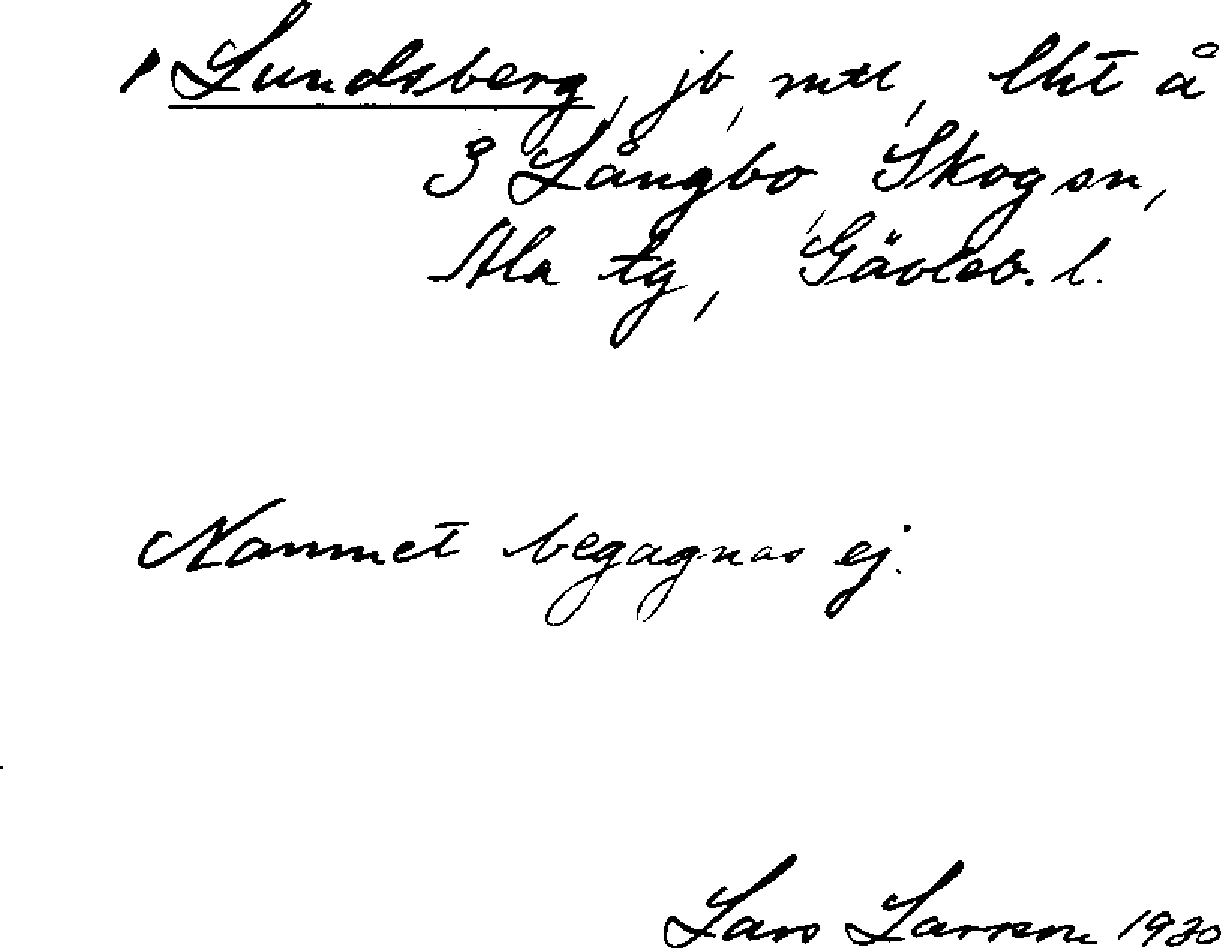 1 Lundsberg, jb, mtl, lht å
3 Långbo, Skog sn,
Ala tg, Gävleb. l.
Namnet begagnas ej.
Lars Larsson 1930